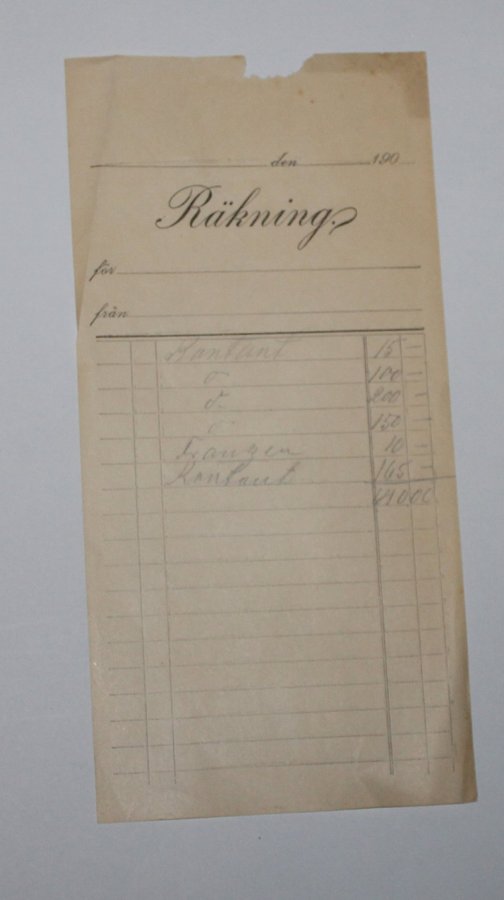 den 190
Räkning
för
från
Kontant 15 —
d 100 —
d. 200 —
d 150 —
Franzén 10 —
Kontant 165 —
64000